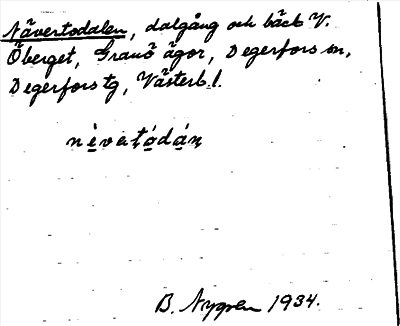 Nävertodalen, dalgång och bäck V.
Öberget, Granö ägor, Degerfors sn,
Degerfors tg, Västerb. l.
nèvatódán
B. Nygren 1934.